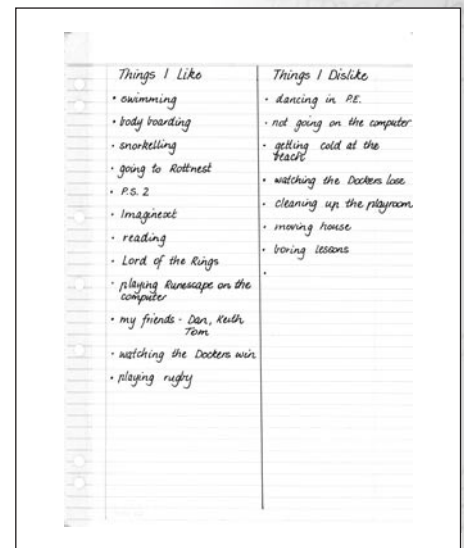 Things I Like
• swimming
• body boarding
• snorkelling
• going to Rottnest
• P.S. 2
• Imaginext
• reading
• Lord of the Rings
• playing Runescape on the
computer
• my friends - Dan, Keith
Tom
• watching the Dockers win
• playing rugby
Things I Dislike
• dancing in P.E.
• not going on the computer
• getting cold at the
beach
• watching the Dockers lose
• cleaning up the playroom
• moving house
• boring lessons
•